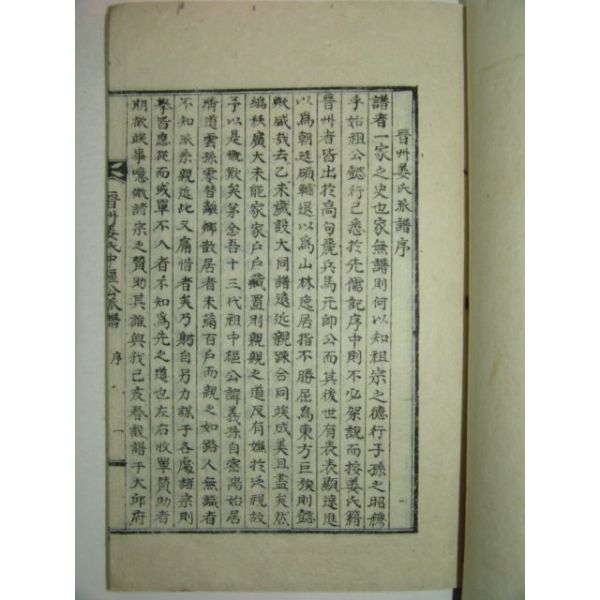 晋州姜氏派譜序
譜者一家之史也家無譜則何以知祖宗之德行子孫之昭穆
乎始祖公懿行已悉於先儒記序中則不必架說而按姜氏籍
晉州者皆出於高句麗兵馬元帥公而其後世有表表顯達進
以爲朝廷碩輔退以爲山林逸居指不勝屈爲東方巨族則懿
歟盛哉去乙未歲設大同譜遠近親踈合同竣成美且盡矣然
編秩廣大未能家家戶戶藏置則親親之道反有嫌於泛視故
予以是慨歎矣第念吾十三代祖中樞公諱義孫自密陽始居
淸道雲孫零替離鄉散居者未滿百戶而親之如路人無識者
不知派系親近此又痛惜者矣乃躬自另力謀于各處諸宗則
擧皆應從而或單不入者不知爲先之道也左右收單贊助者
期從竣事噫微諸宗之贊助其誰與我己亥春設譜于大邱府
晋州姜氏中樞公派譜 序 一